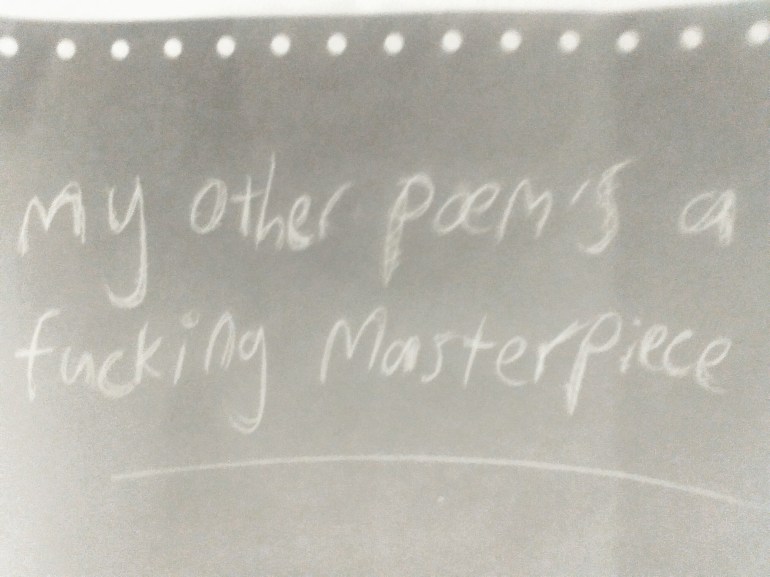 My other poem's a
fucking Masterpiece